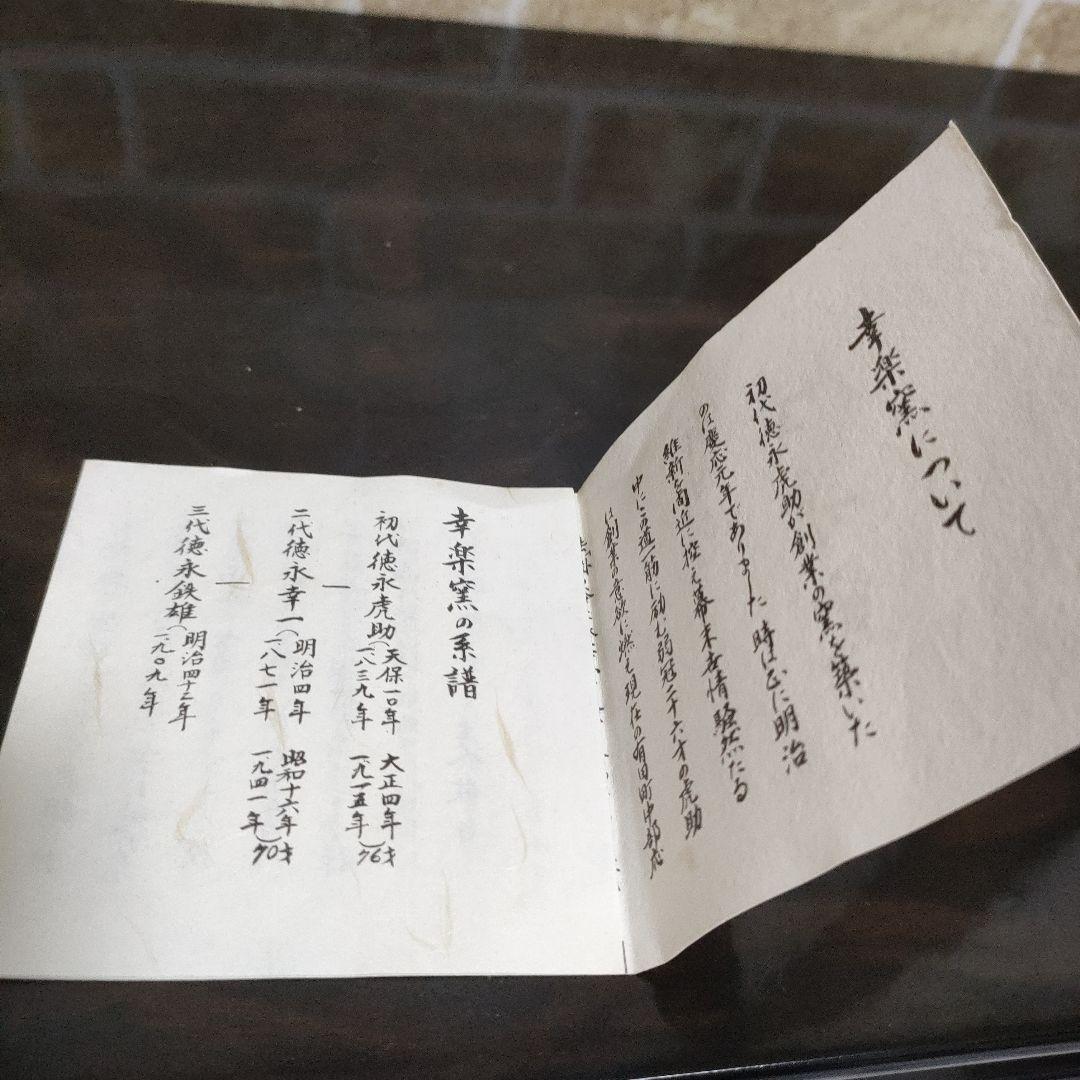 幸楽窯について
初代徳永虎助が創業の窯を築いた
のは慶応元年でありました 時は正に明治
維新を間近に控え幕末世情騒然たる
中にこの道一筋に励む弱冠二十六才の虎助
は創業の意欲に燃え現在の有田町中部応
幸楽窯の系譜
初代徳永虎助(天保一〇年 大正四年
一、八三九年 一、九一五年)76才
二代徳永幸一(明治四年 昭和十六年
一、八七一年 一、九四一年)70才
三代徳永鉄雄(明治四十二年
一、九〇九年